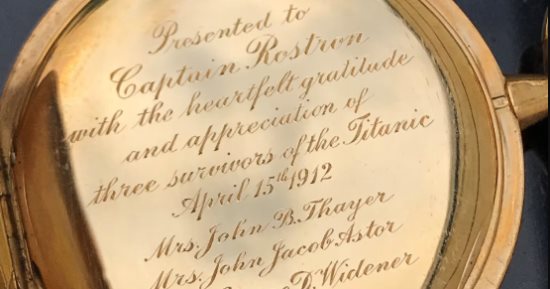 Presented to
Captain Rostron
with the heartfelt gratitude
and appreciation of
three survivors of the Titanic
April 15th 1912
Mrs. John B. Thayer
Mrs. John Jacob Astor
D. Widener